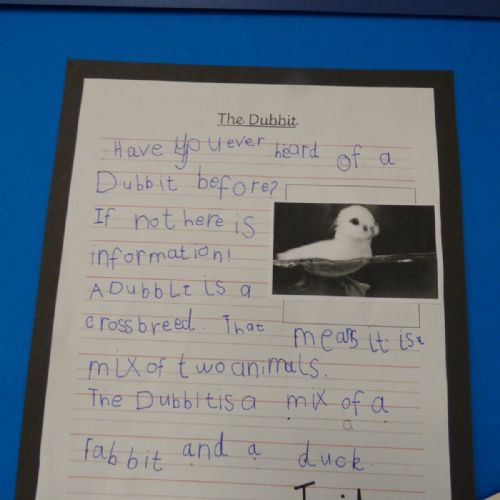 The Dubbit
Have you ever heard of a
Dubbit before?
If not here is
information!
A Dubbit is a
crossbreed. That means it is a
mix of two animals.
The Dubbit is a mix of a
a
rabbit and a duck.